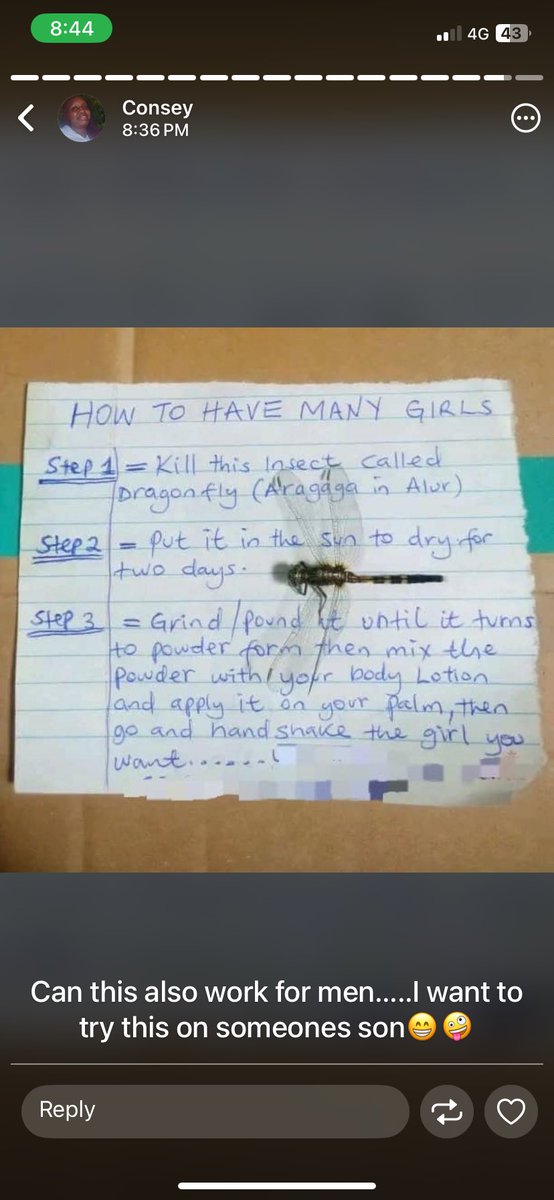 8:44
4G 43
Consey
8:36 PM
HOW TO HAVE MANY GIRLS
Step 1 = Kill this Insect called
Dragonfly (Aragaga in Alur)
Step 2 = Put it in the sun to dry for
two days.
Step 3 = Grind/pound it until it turns
to powder form then mix the
powder with your body Lotion
and apply it on your palm, then
go and hand shake the girl you
want......!
Can this also work for men.....I want to
try this on someones son😁🤪
Reply